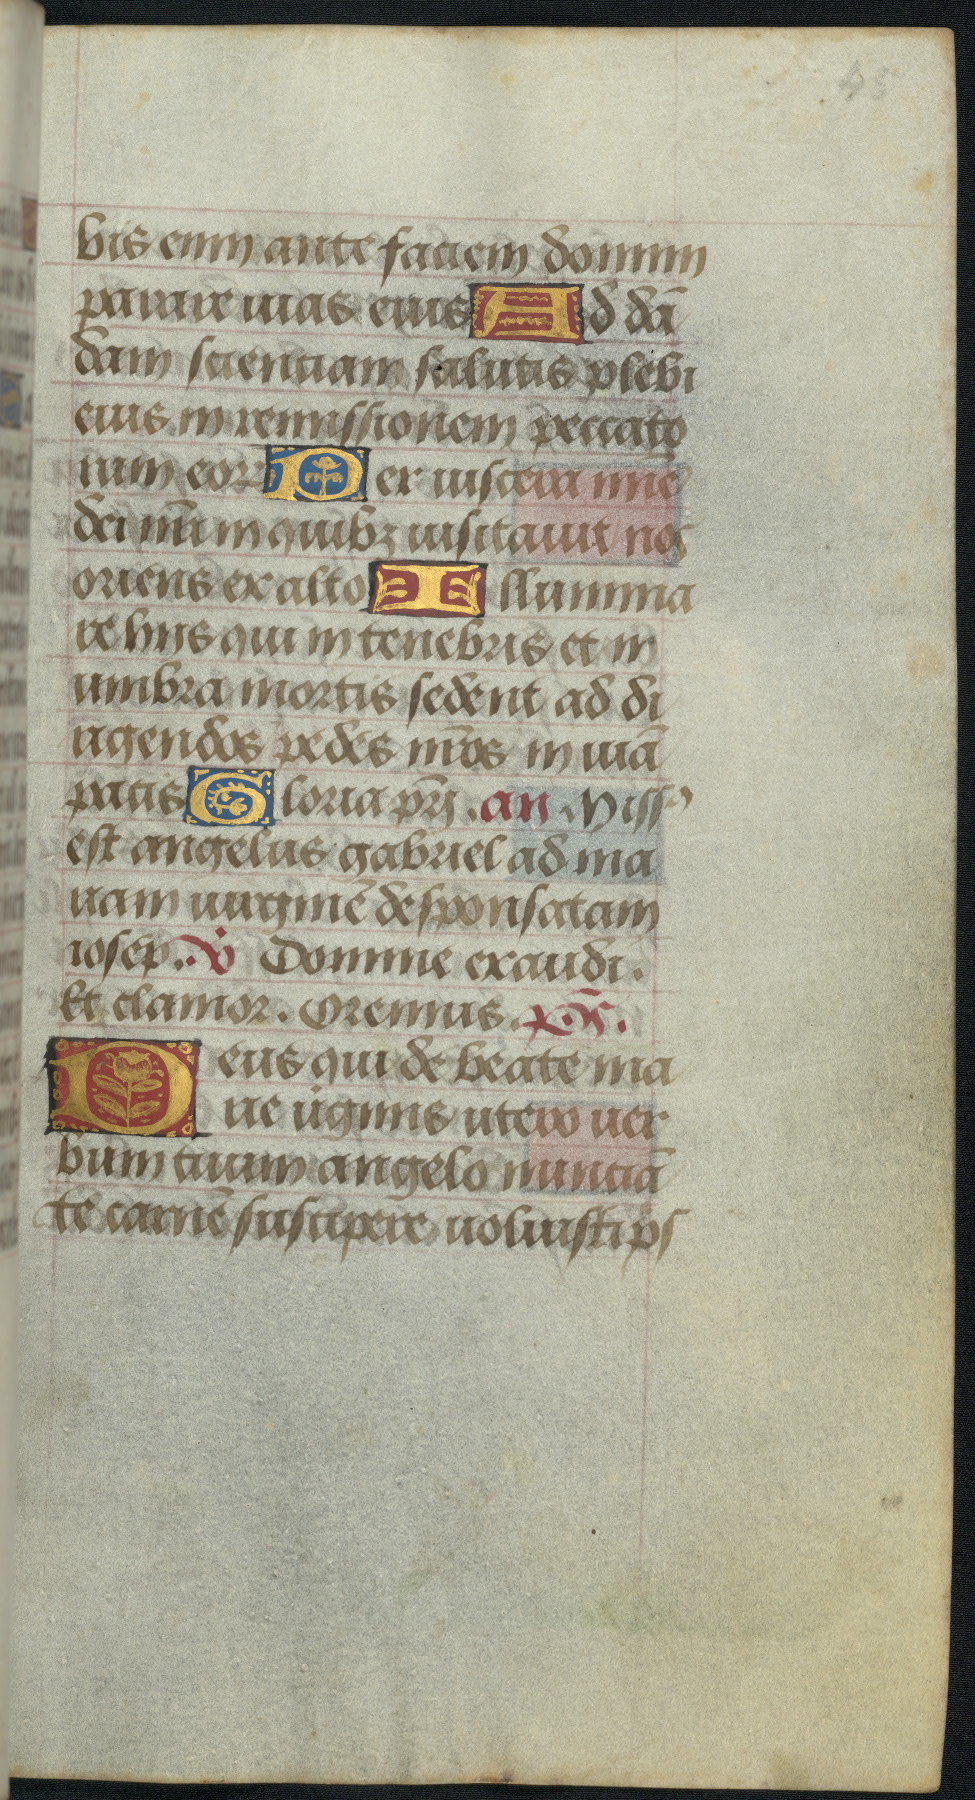 45
bis enim ante faciem domini
parare uias eius Ad dā
dam scienciam salutis plebi
eius in remissionem peccato
rum eorꝝ Per uiscera mīe
dei nr̄i in quibꝫ uisitauit nos
oriens ex alto Illumina
re hiis qui in tenebris et in
umbra mortis sedent ad di
rigendos pedes nr̄os in uiā
pacis Gloria pr̄i. an. Miss᾿
est angelus gabriel ad ma
riam uirginē desponsatam
iosep. ℣ Domine exaudi.
Et clamor. Oremus.
Deus qui de beate ma
rie uirginis utero uer
bum tuum angelo nunciā
te carnē suscipere uoluisti p̄s